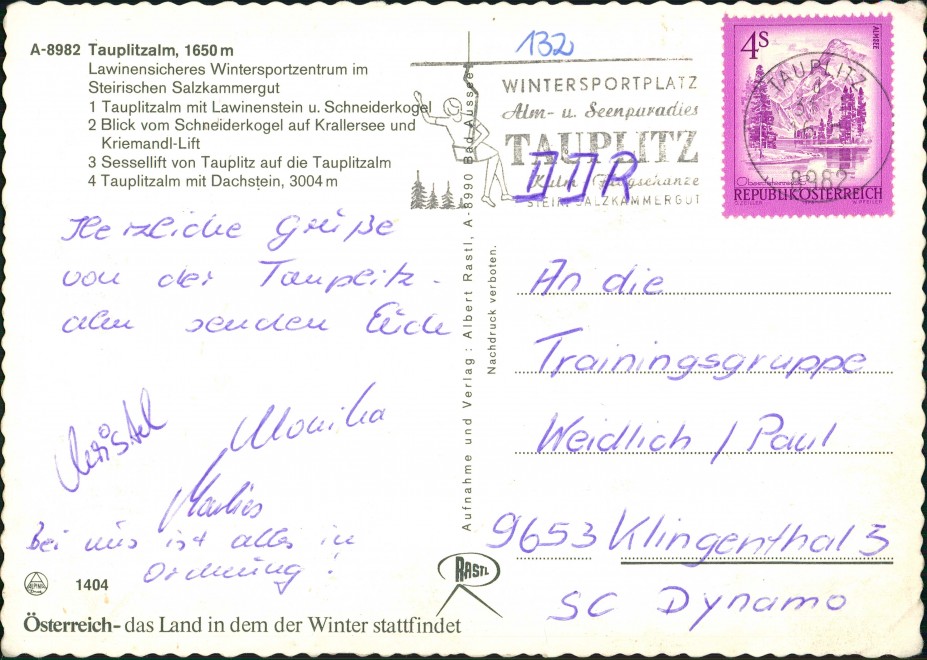 A-8982 Tauplitzalm, 1650 m
Lawinensicheres Wintersportzentrum im
Steirischen Salzkammergut
1 Tauplitzalm mit Lawinenstein u. Schneiderkogel
2 Blick vom Schneiderkogel auf Krallersee und
Kriemandl-Lift
3 Sessellift von Tauplitz auf die Tauplitzalm
4 Tauplitzalm mit Dachstein, 3004 m
Herzliche Grüße
von der Tauplitz-
alm senden Euch
Christel
Monika
Marlies
Bei uns ist alles in
Ordnung!
1404
Österreich- das Land in dem der Winter stattfindet
Aufnahme und Verlag: Albert Rastl, A-8990 Bad Aussee
Nachdruck verboten.
RASTL
132
WINTERSPORTPLATZ
Alm- u. Seenparadies
TAUPLITZ
Kulm Flugschanze
STEIR. SALZKAMMERGUT
DDR
4S
ALMSEE
REPUBLIK ÖSTERREICH
TAUPLITZ
8982
An die
Trainingsgruppe
Weidlich / Paul
9653 Klingenthal 5
SC Dynamo